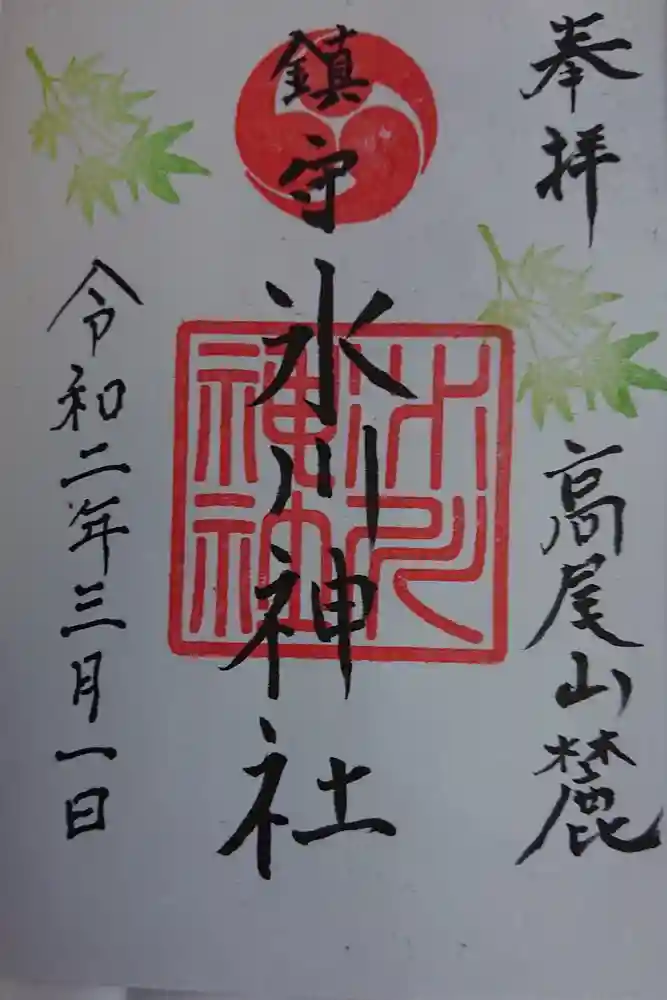 奉拝
高尾山麓
鎮守
氷川神社
氷川
神社
令和二年三月一日